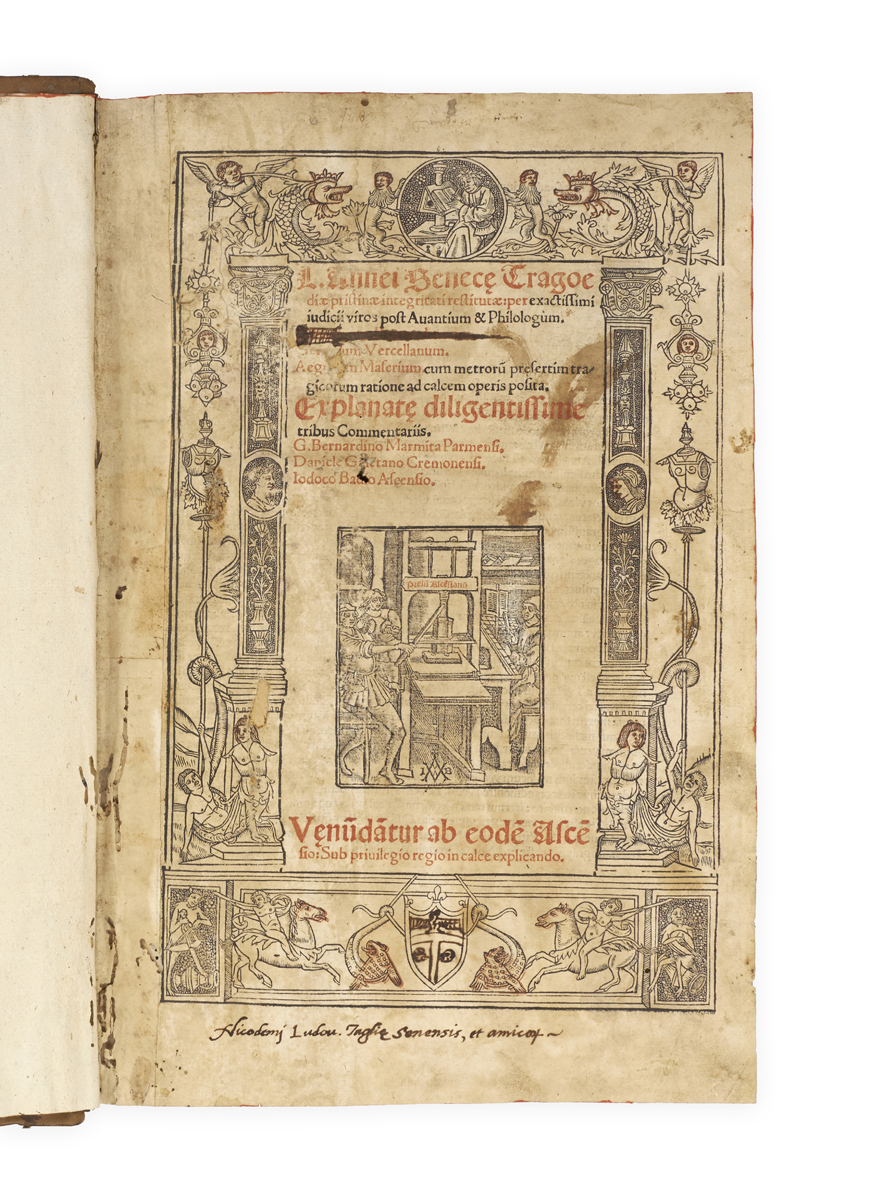 L. Annei Senecę Tragoe
diæ pristinæ integritati restitutæ: per exactissimi
iudicii viros post Avantium & Philologum.
Vercellanum.
Maserium cum metrorū presertim tra-
gicorum ratione ad calcem operis posita.
Explanatę diligentissime
tribus Commentariis.
G. Bernardino Marmita Parmensi.
Daniele Gaetano Cremonensi.
Iodoco Badio Ascensio.
Prelū Ascēsianū
IB
Vęnūdātur ab eodē Ascē
sio: Sub privilegio regio in calce explicando.
Nicodemi Ludou. Taglię Senensis, et amicoꝝ